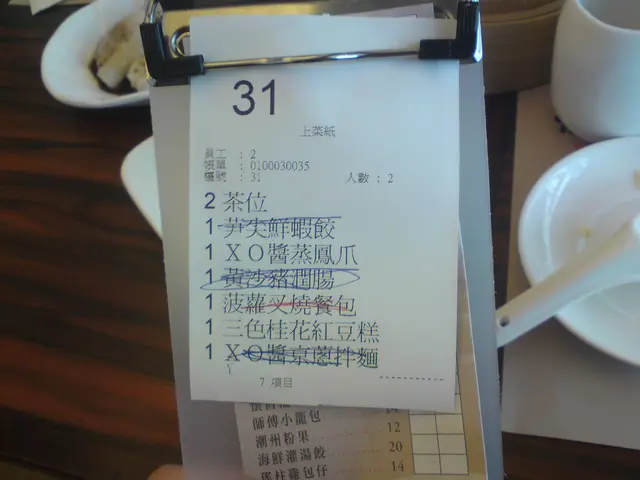 31
上菜紙
員工 : 2
帳單 : 0100030035
檯號 : 31 人數 : 2
2 茶位
1 笋尖鮮蝦餃
1 XO醬蒸鳳爪
1 黃沙豬潤腸
1 菠蘿叉燒餐包
1 三色桂花紅豆糕
1 XO醬京蔥拌麵
7 項目
師傅小籠包 12
潮州粉果 20
海鮮灌湯餃 14